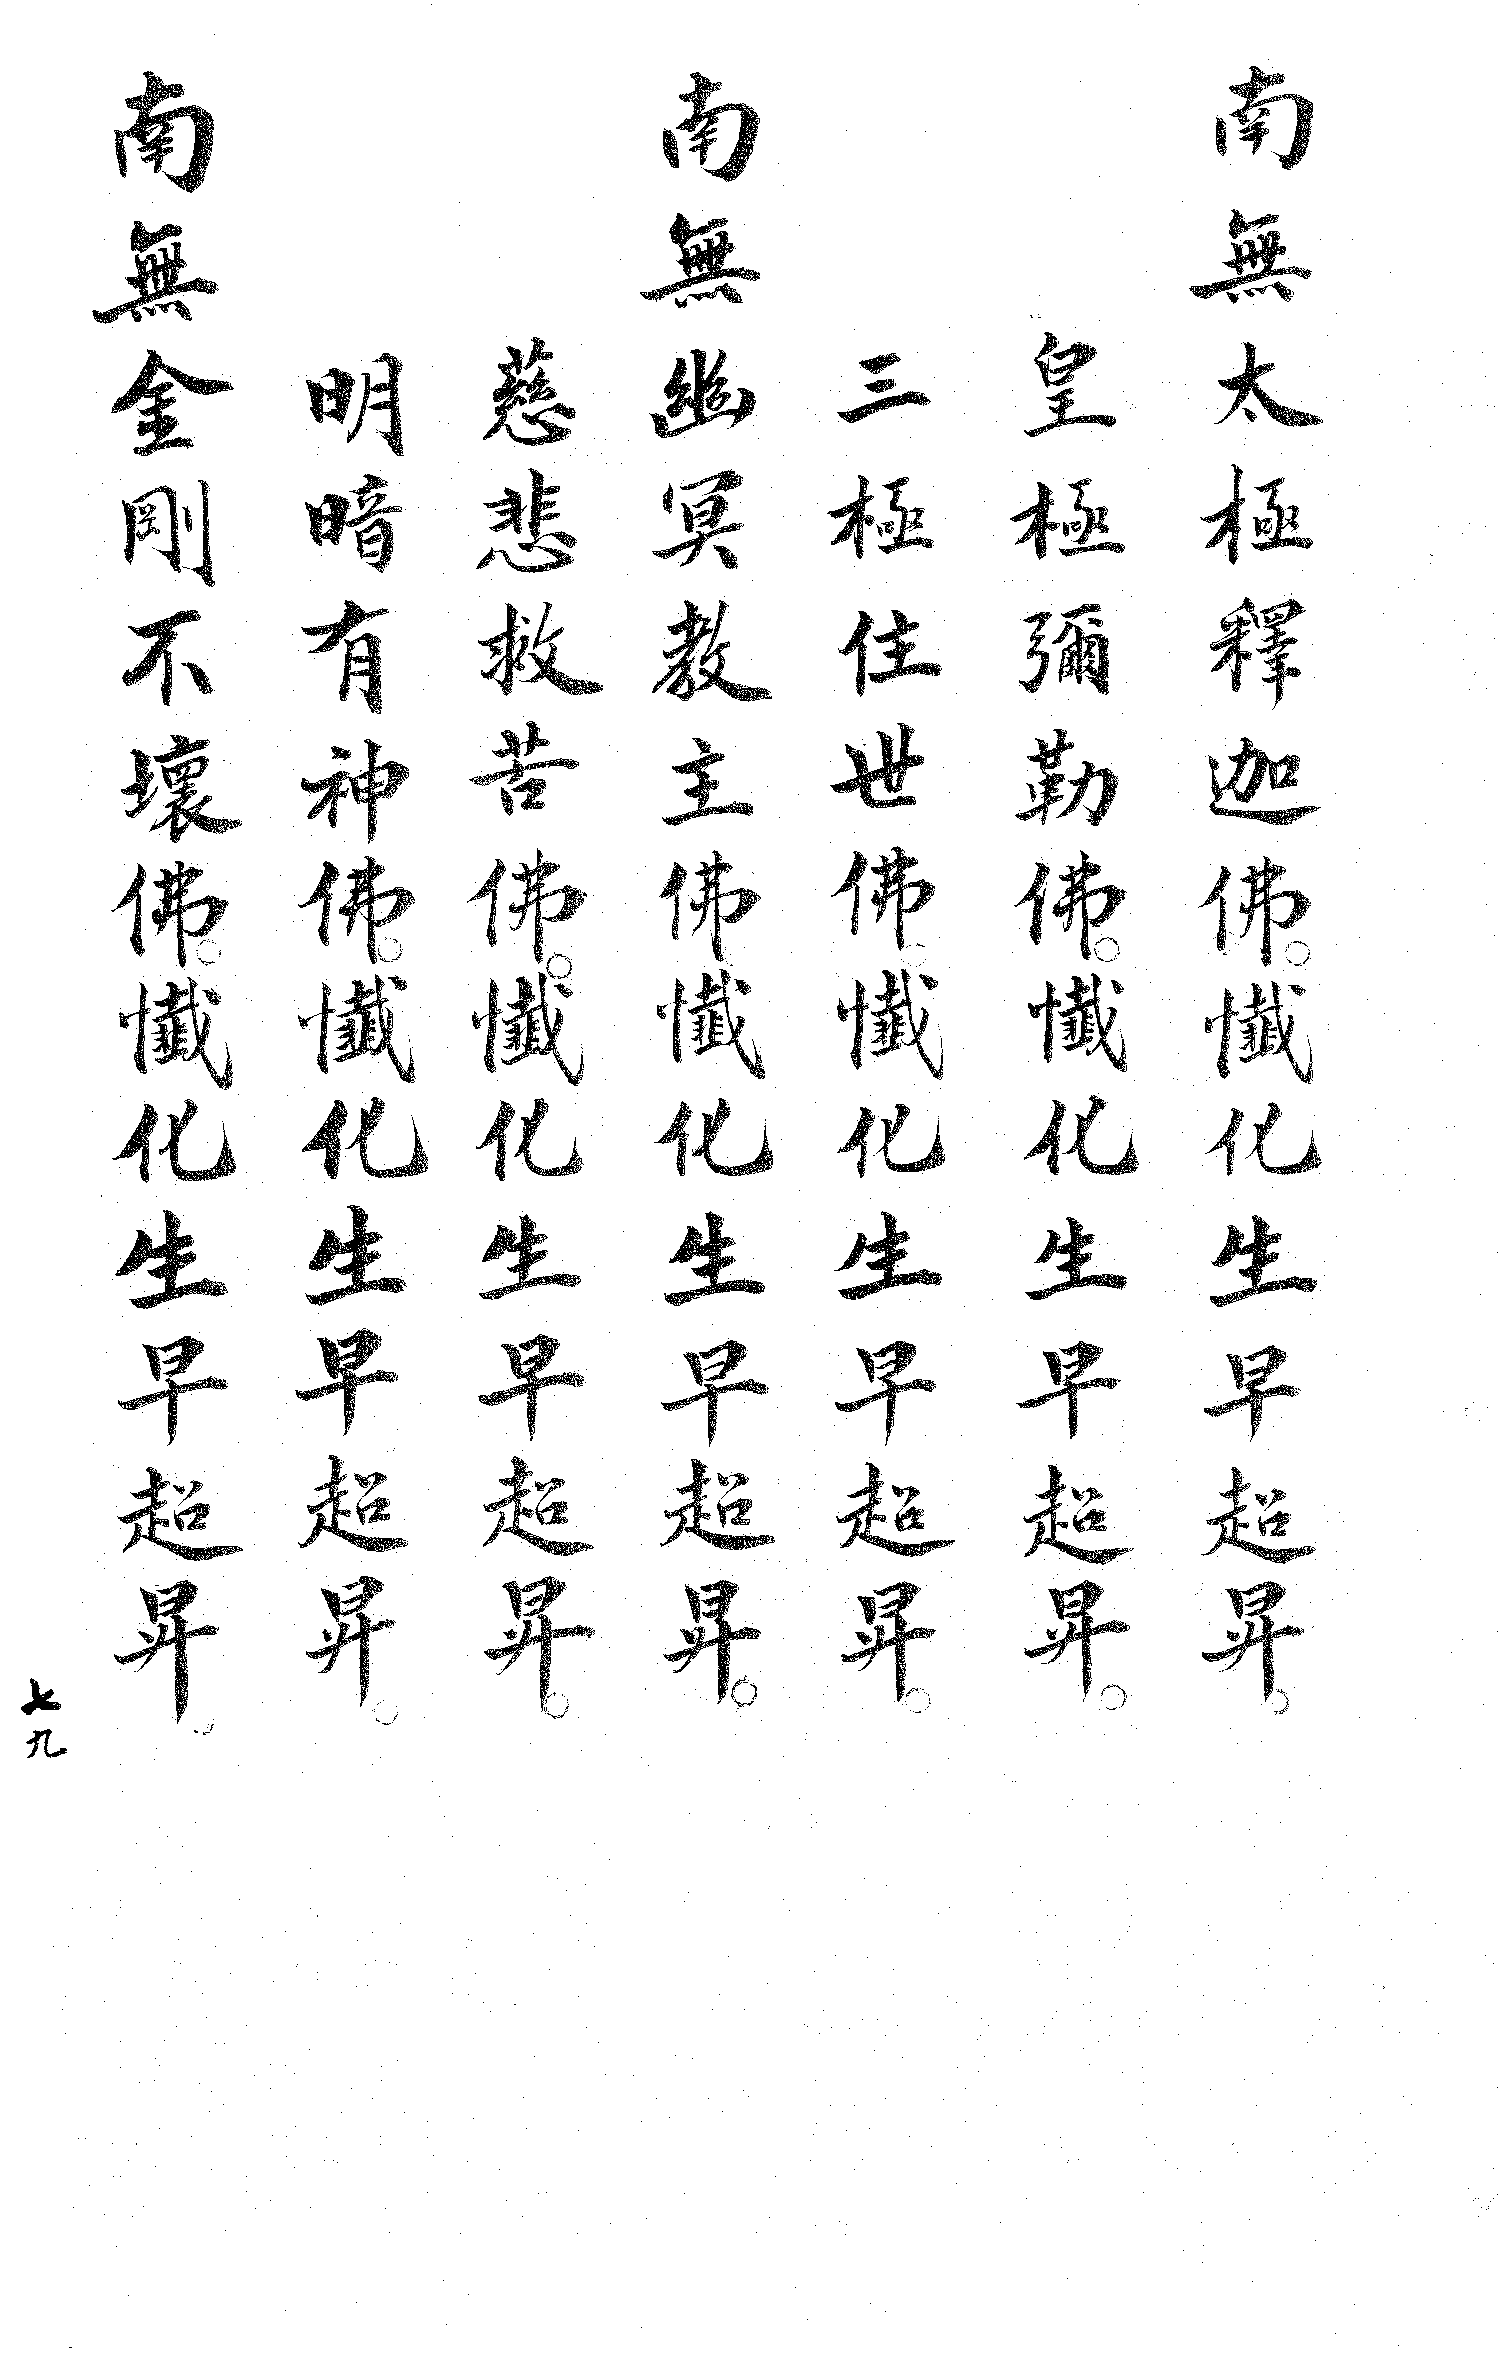 南無太極釋迦佛。懺化生早超昇。
皇極彌勒佛。懺化生早超昇。
三極住世佛。懺化生早超昇。
南無幽冥教主佛懺化生早超昇。
慈悲救苦佛。懺化生早超昇。
明暗有神佛。懺化生早超昇。
南無金剛不壞佛。懺化生早超昇。
七九